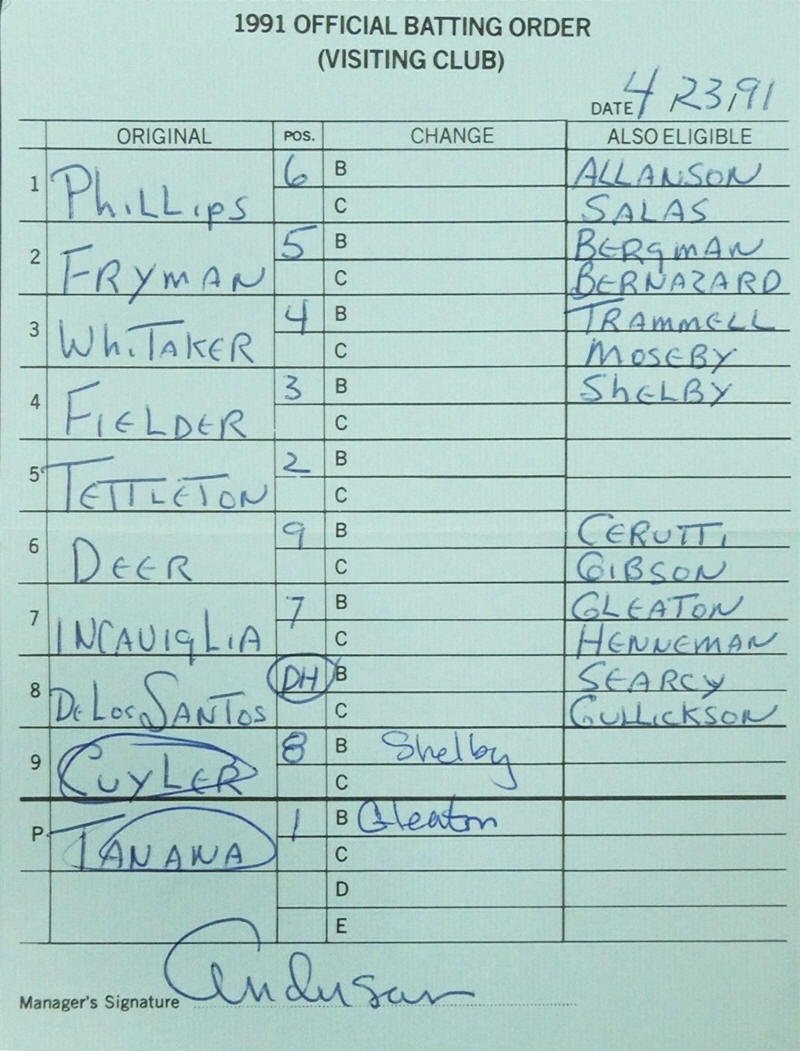 1991 OFFICIAL BATTING ORDER
(VISITING CLUB)
DATE 4/23/91
ORIGINAL POS. CHANGE ALSO ELIGIBLE
1 PhiLLips 6 B ALLANSON
C SALAS
2 FRYMAN 5 B BERGMAN
C BERNAZARD
3 WhiTAKER 4 B TRAMMELL
C MOSEBY
4 FIELDER 3 B ShELBY
C
5 TETTLETON 2 B
C
6 DEER 9 B CERUTTi
C GIBSON
7 INCAVIGLIA 7 B GLEATON
C HENNEMAN
8 DE LOS SANTOS DH B SEARCY
C GULLICKSON
9 CUYLER 8 B Shelby
C
P. TANANA 1 B Gleaton
C
D
E
Manager's Signature Anderson